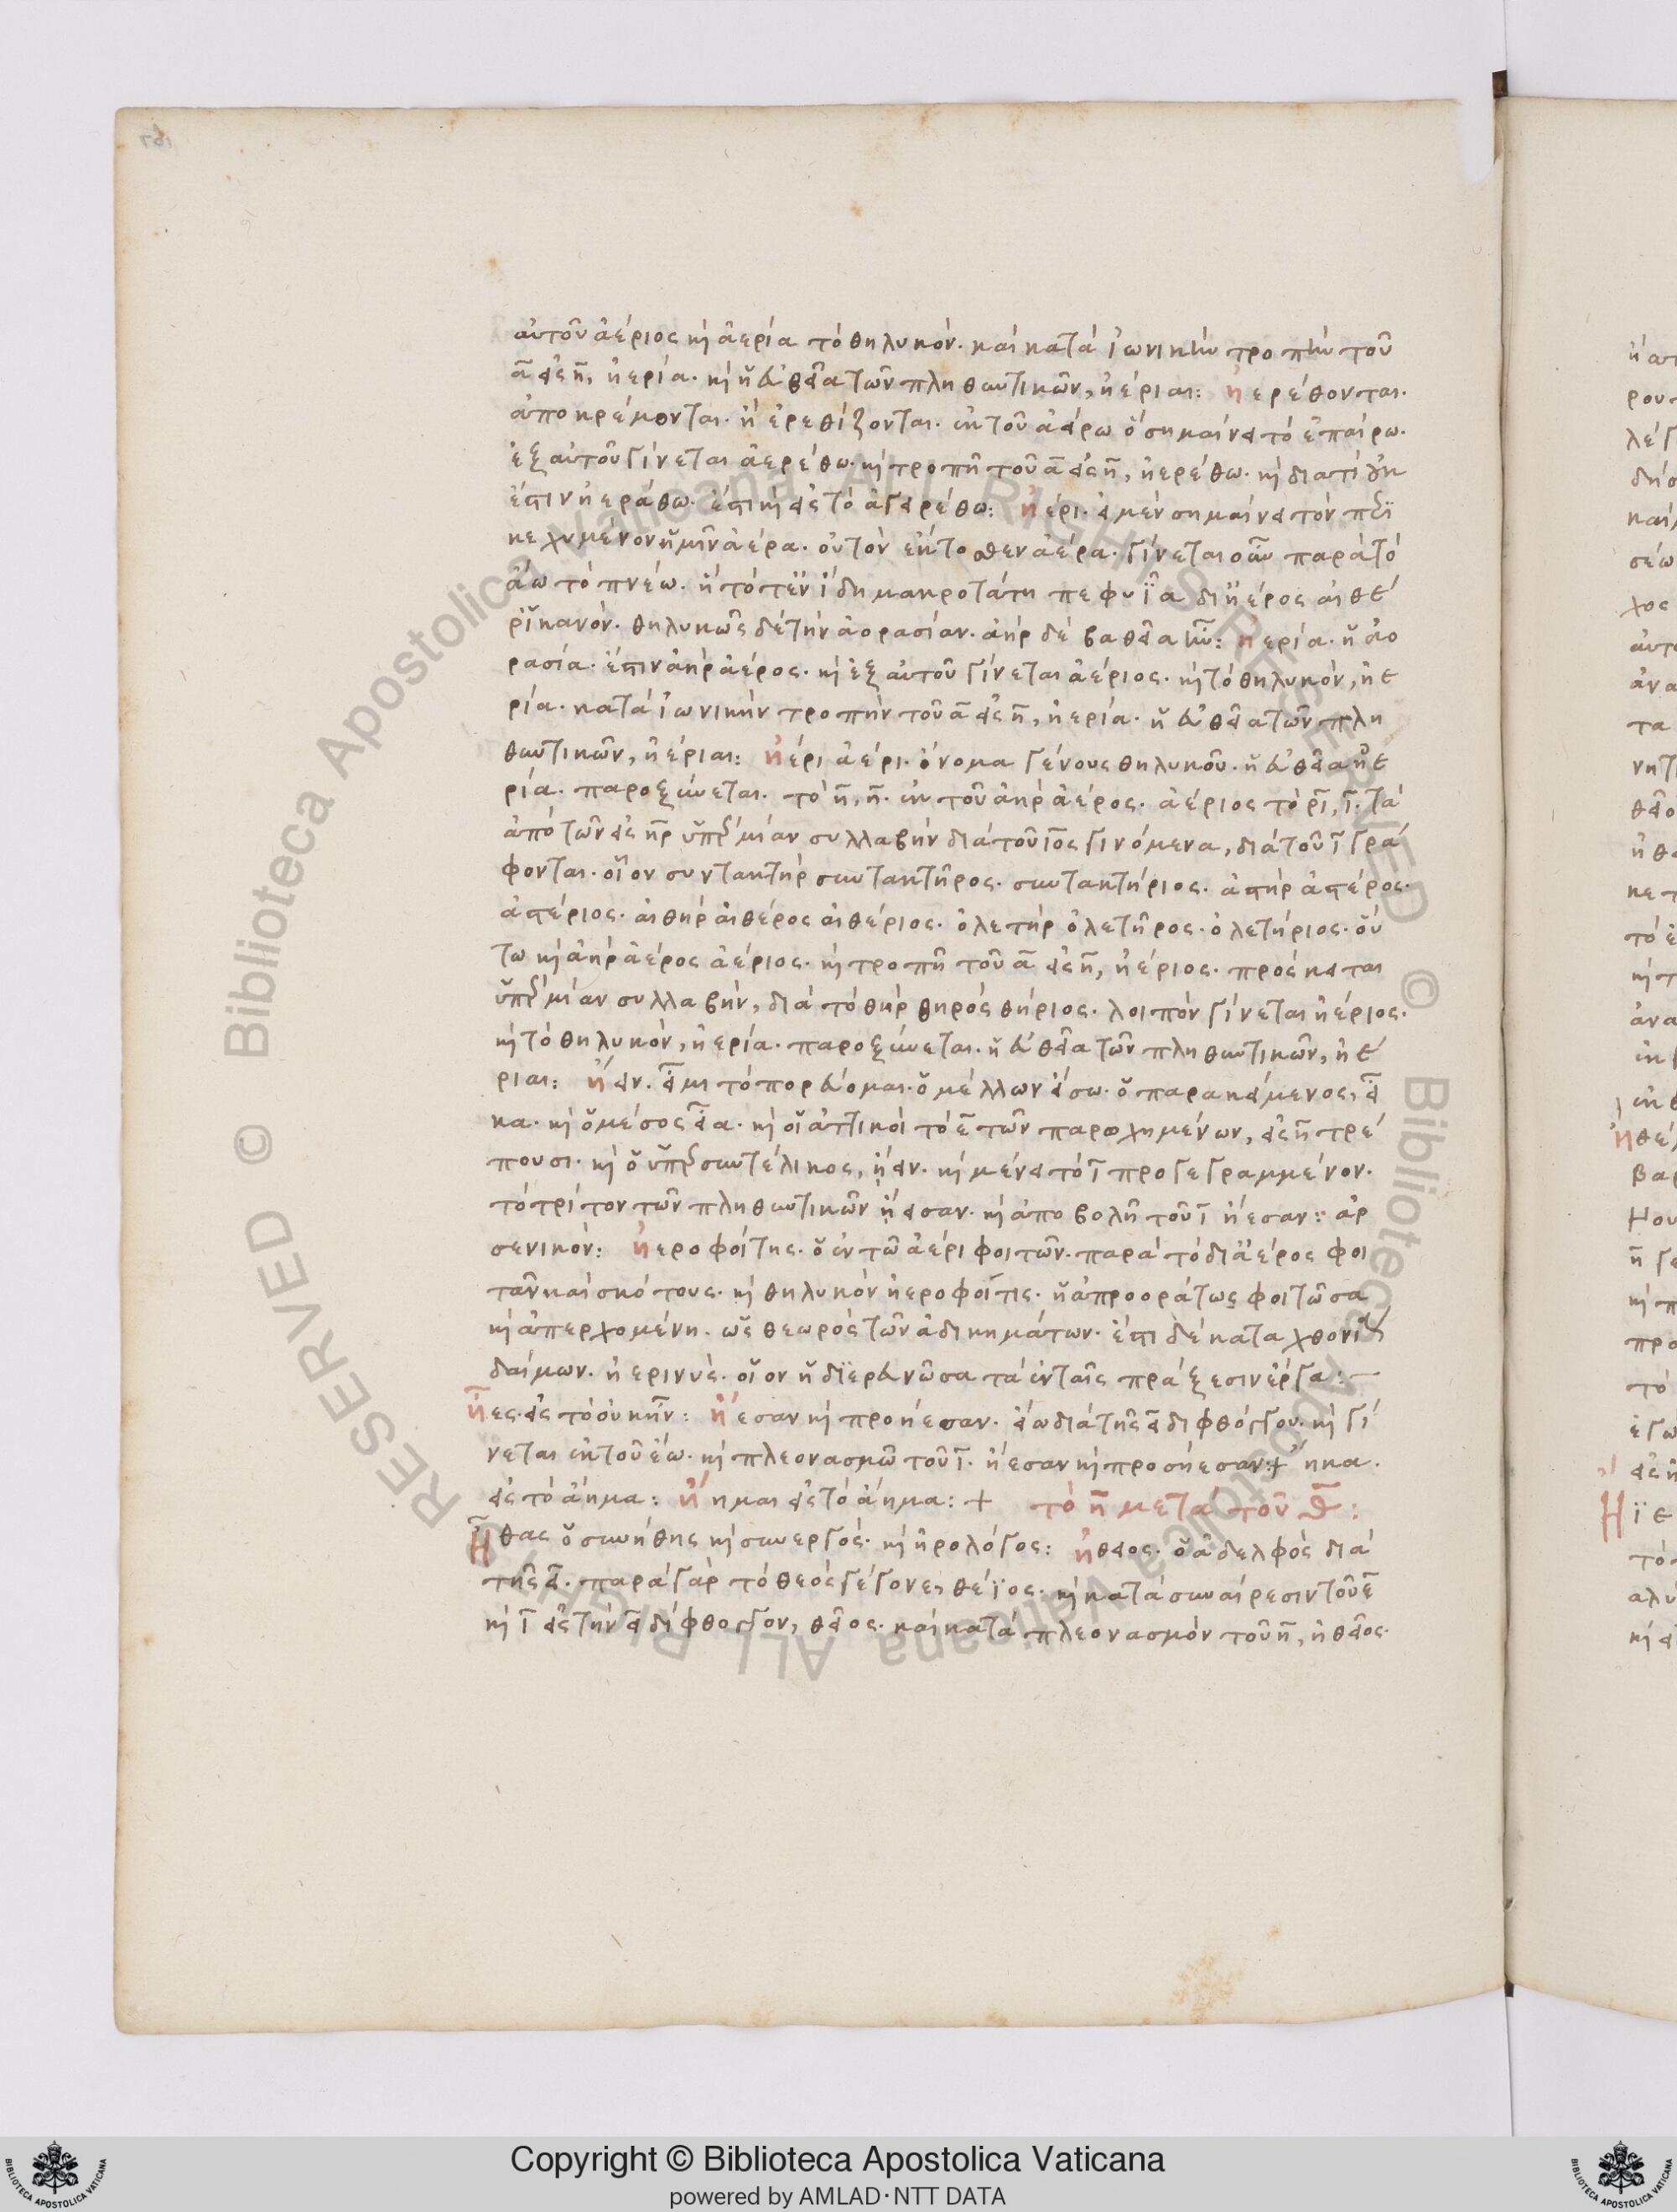 αὐτοῦ ἀέριος καὶ ἀερία τὸ θηλυκόν. καὶ κατὰ ἰωνικὴν τροπὴν τοῦ
α εἰς η, ἠερία. καὶ ἡ εὐθεῖα τῶν πληθυντικῶν, ἠέριαι: ἠερέθονται.
ἀποκρέμονται. ἢ ἐρεθίζονται. ἐκ τοῦ ἀείρω ὃ σημαίνει τὸ ἐπαίρω.
ἐξ αὐτοῦ γίνεται ἀερέθω. καὶ τροπῇ τοῦ α εἰς η, ἠερέθω. καὶ διατί οὐκ
ἔστιν ἠερείθω. ἔστι καὶ εἰς τὸ ἀγερέθω: ἠέρι. εἰ μὲν σημαίνει τὸν περι
κεχυμένον ἡμῖν ἀέρα. οὗτον ἔκτοθεν ἀέρα. γίνεται οὖν παρὰ τὸ
ἄω τὸ πνέω. μακροτάτη πεφυῖα δι ἠέρος αἰθέ
ρ ἵκανον. θηλυκῶς δὲ τὴν ἀορασίαν. ἀὴρ δὲ βαθεῖα ἦν: ἠερία. ἡ ἀο
ρασία. ἔστιν ἀὴρ ἀέρος. καὶ ἐξ αὐτοῦ γίνεται ἀέριος. καὶ τὸ θηλυκὸν, ἠε
ρία. κατὰ ἰωνικὴν τροπὴν τοῦ α εἰς η, ἠερία. ἡ εὐθεῖα τῶν πλη
θυντικῶν, ἠέριαι: ἠέρι ἀέρι. ὄνομα γένους θηλυκοῦ. ἡ εὐθεῖα ἠε
ρία. παροξύνεται. τὸ η, η. ἐκ τοῦ ἀὴρ ἀέρος. ἀέριος τὸ ρι, ι. τὰ
ἀπὸ τῶν εἰς ηρ ὑπὲρ μίαν συλλαβὴν διὰ τοῦ ιος γινόμενα, διὰ τοῦ ι γρά
φονται. οἷον συντακτὴρ συντακτῆρος. συντακτήριος. ἀστὴρ ἀστέρος.
ἀστέριος. αἰθὴρ αἰθέρος αἰθέριος. ὀλετὴρ ὀλετῆρος. ὀλετήριος. οὕ
τω καὶ ἀὴρ ἀέρος ἀέριος. καὶ τροπῇ τοῦ α εἰς η, ἠέριος. πρόσκειται
ὑπὲρ μίαν συλλαβὴν, διὰ τὸ θὴρ θηρὸς θήριος. λοιπὸν γίνεται ἠέριος.
καὶ τὸ θηλυκὸν, ἠερία. παροξύνεται. ἡ εὐθεῖα τῶν πληθυντικῶν, ἠέ
ριαι: ἤειν. εἶμι τὸ πορεύομαι. ὁ μέλλων εἴσω. ὁ παρακείμενος, εἶ
κα. καὶ ὁ μέσος εἶα. καὶ οἱ ἀττικοὶ τὸ ε τῶν παρῳχημένων, εἰς η τρέ
πουσι. καὶ ὁ ὑπερσυντέλικος, ᾔειν. καὶ μένει τὸ ι προσγεγραμμένον.
τὸ τρίτον τῶν πληθυντικῶν ᾔεισαν. καὶ ἀποβολῇ τοῦ ι ἤεσαν: ἀρ
σενικόν: ἠεροφοίτης. ὁ ἐν τῷ ἀέρι φοιτῶν. παρὰ τὸ δι ἀέρος φοι
τᾶν καὶ σκότους. καὶ θηλυκὸν ἠεροφοῖτις. ἡ ἀπροοράτως φοιτῶσα
καὶ ἀπερχομένη. ὡς θεωρὸς τῶν ἀδικημάτων. ἔστι δὲ καταχθονία
δαίμων. ἡ ἐρινύς. οἷον ἡ διερευνῶσα τὰ ἐν ταῖς πράξεσιν ἔργα:
ἦες. εἰς τὸ οὐκ ἦν: ἤεσαν καὶ προήεσαν. εἴω διὰ τῆς ει διφθόγγου. καὶ γί
νεται ἐκ τοῦ ἔω. καὶ πλεονασμῷ τοῦ ι. ἤεσαν καὶ προσήεσαν:+ ηκα.
εἰς τὸ ἄημα: ἤημαι εἰς τὸ ἄημα: + τὸ η μετὰ τοῦ θ:
ἠθὰς ὁ συνήθης καὶ συνεργός. καὶ ἠρολόγος: ἠθεῖος. ὁ ἀδελφὸς διὰ
τῆς ει. παρὰ γὰρ τὸ θεὸς γέγονε, θέϊος. καὶ κατὰ συναίρεσιν τοῦ ε
καὶ ι εἰς τὴν ει δίφθογγον, θεῖος. καὶ κατὰ πλεονασμὸν τοῦ η, ἠθεῖος.
Copyright © Biblioteca Apostolica Vaticana
powered by AMLAD·NTT DATA